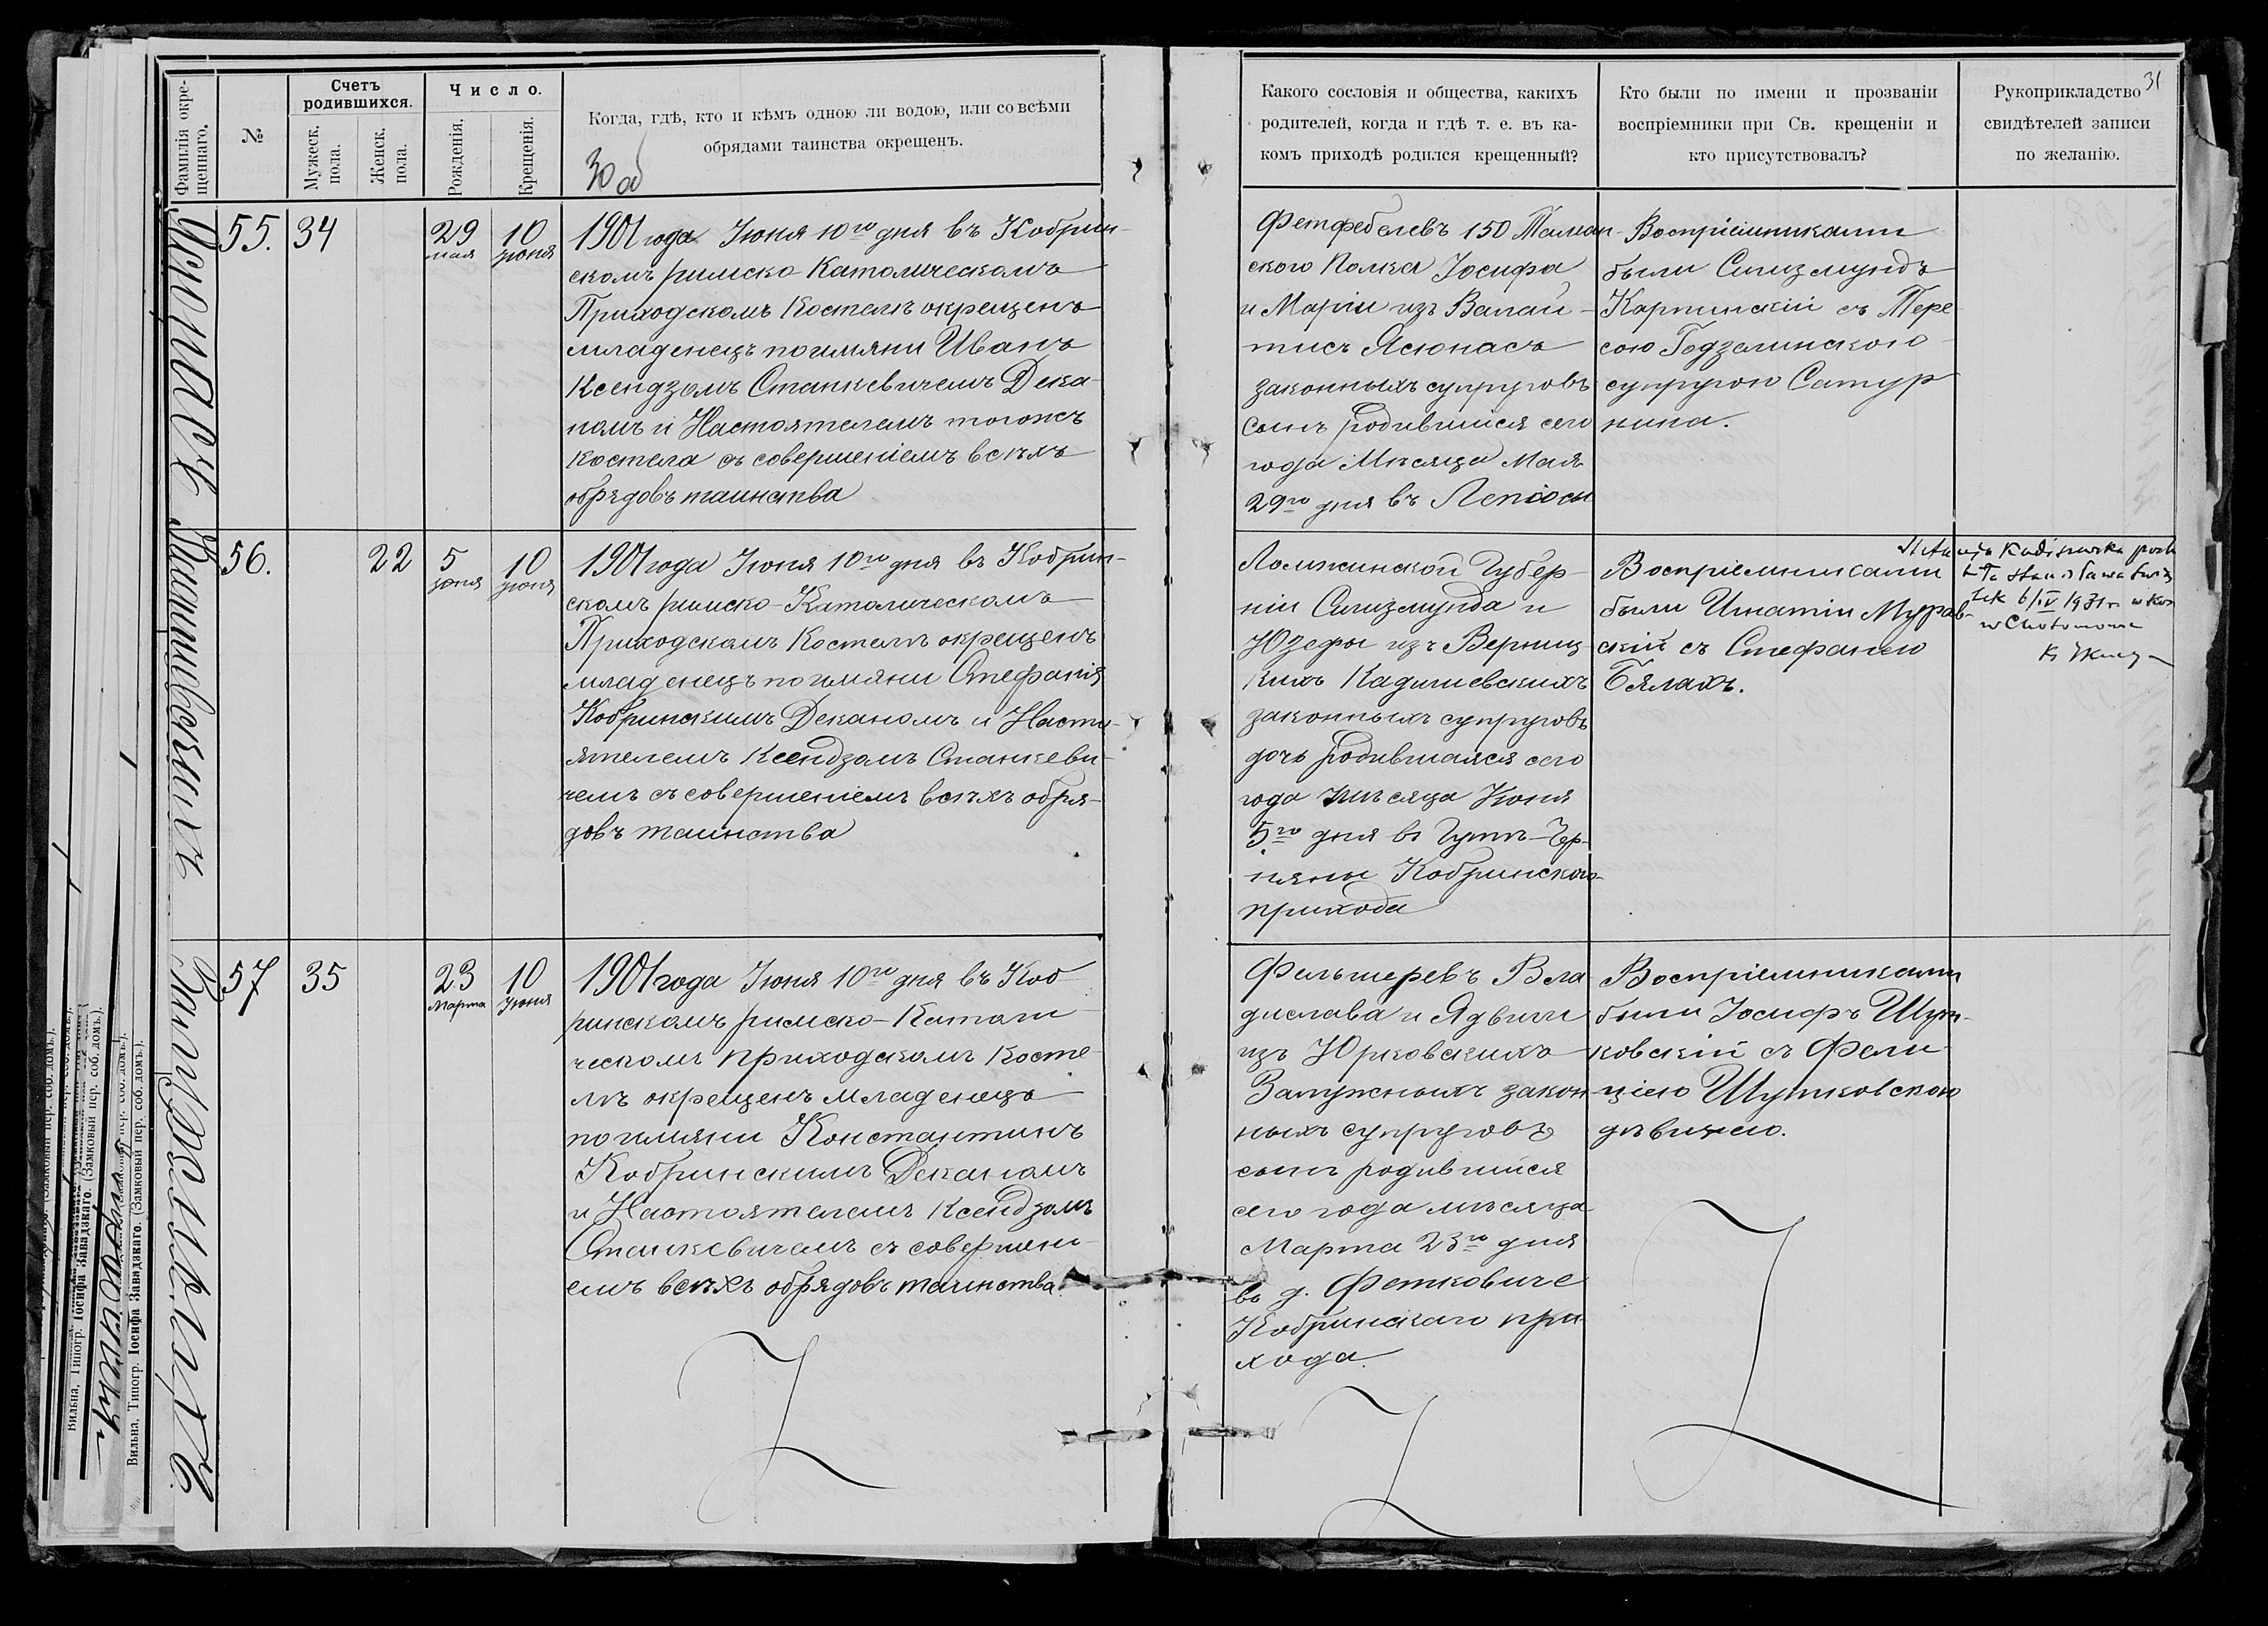 31
Фамилія окре-
щеннаго.
№
Счетъ
родившихся.
Мужеск.
пола.
Женск.
пола.
Число.
Рожденія.
Крещенія.
Когда, гдѣ, кто и кѣмъ одною ли водою, или со всѣми
обрядами таинства окрещенъ.
30 об
Какого сословія и общества, какихъ
родителей, когда и гдѣ т. е. въ ка-
комъ приходѣ родился крещенный?
Кто были по имени и прозваніи
воспріемники при Св. крещеніи и
кто присутствовалъ?
Рукоприкладство
свидѣтелей записи
по желанію.
Ясюнасъ
55.
34
29
мая
10
іюня
1901 года Іюня 10го дня въ Кобрин-
скомъ римско Католическомъ
Приходскомъ Костелѣ окрещенъ
младенецъ по имяни Иванъ
Ксендзомъ Станкевичемъ Дека-
номъ и Настоятелемъ тогожъ
Костела съ совершеніемъ всѣхъ
обрядовъ таинства
Фетфебелевъ 150 Таман-
ского Полка Іосифа
и Маріи изъ Валай-
тисъ Ясюнасъ
законныхъ супруговъ
сынъ родившійся сего
года Мѣсяца Мая
29го дня въ Лепіосы
Воспріемниками
были Сигизмундъ
Карпинскій съ Тере
сою Годзелинского
супругою Сатур
нина.
Кадишевскихъ
56.
22
5
іюня
10
іюня
1901 года Іюня 10го дня въ Кобрин-
скомъ римско-Католическомъ
Приходскомъ Костелѣ окрещенъ
младенецъ по имяни Стефанія
Кобринскимъ Деканомъ и Насто-
ятелемъ Ксендзомъ Станкеви-
чемъ съ совершеніемъ всѣхъ обря-
довъ таинства
Ломжинской Губер-
ніи Сигизмунда и
Юзефы изъ Верниц-
кихъ Кадишевскихъ
законныхъ супруговъ
дочь родившаяся сего
года мѣсяца Іюня
5го дня въ Гутѣ-Чер-
няны Кобринского
прихода
Воспріемниками
были Игнатій Мурав-
скій съ Стефаніею
Бялахъ.
Kadiszewska
6/IV 1931 r.
57
35
23
Марта
10
Іюня
1901 года Іюня 10го дня въ Коб
ринскомъ римско-Католи
ческомъ приходскомъ Косте
лѣ окрещенъ младенецъ
по имяни Константинъ
Кобринскимъ Деканомъ
и Настоятелемъ Ксендзомъ
Станкевичемъ съ совершені-
емъ всѣхъ обрядовъ таинства.
Фельшеревъ Вла
дислава и Ядвиги
изъ Юрковскихъ
Залужныхъ закон
ныхъ супруговъ
сынъ родившійся
сего года мѣсяца
Марта 23го дня
въ д. Фетковиче
Кобринскаго при
хода.
Воспріемниками
были Іосифъ Шут-
ковскій съ Фели
ціею Шутковскою
дѣвицею.
Вильна. Типогр. Іосифа Завадзкаго. (Замковый пер. соб. домъ.).